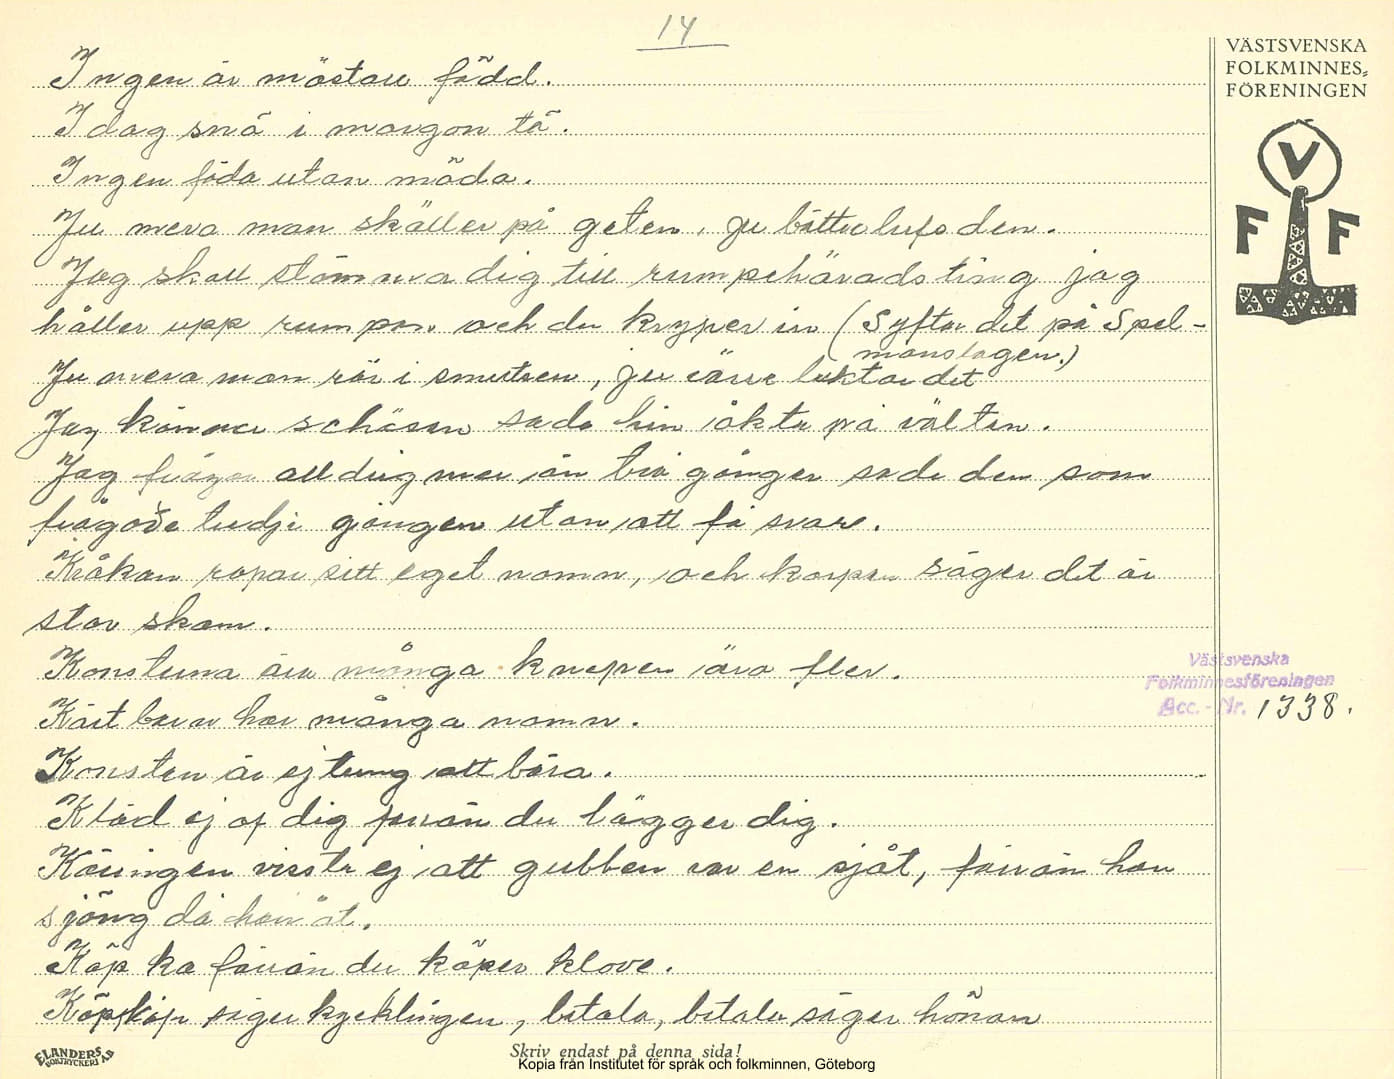 14
VÄSTSVENSKA
FOLKMINNES=
FÖRENINGEN
V
F F
Ingen är mästare född.
I dag snö i morgon tö.
Ingen föda utan möda.
Ju mera man skäller på geten, ju bättre den.
Jag skall stämma dig till rumpehäradsting jag
håller upp rumpan och du kryper in (Syftar det på Spel-
manslagen.)
Ju mera man rör i smutsen, ju värre luktar det
Jag känner schäsen sade hin åkte på välten.
Jag frågar alldrig mer än två gånger sade den som
frågade tredje gången utan att få svar.
Kråkan ropar sitt eget namn, och korpen säger det är
stor skam.
Konsterna äro många knepen äro fler.
Kärt barn har många namn.
Konsten är ej tung att bära.
Kläd ej af dig förrän du lägger dig.
Käringen visste ej att gubben var en sjåt, förrän han
sjöng då han åt.
Köp ko förrän du köper klove.
Köp, köp säger kycklingen, betala, betala säger hönan
Västsvenska
Folkminnesföreningen
Acc.-Nr. 1338.
ELANDERS
BOKTRYCKERI AB
Skriv endast på denna sida!
Kopia från Institutet för språk och folkminnen, Göteborg